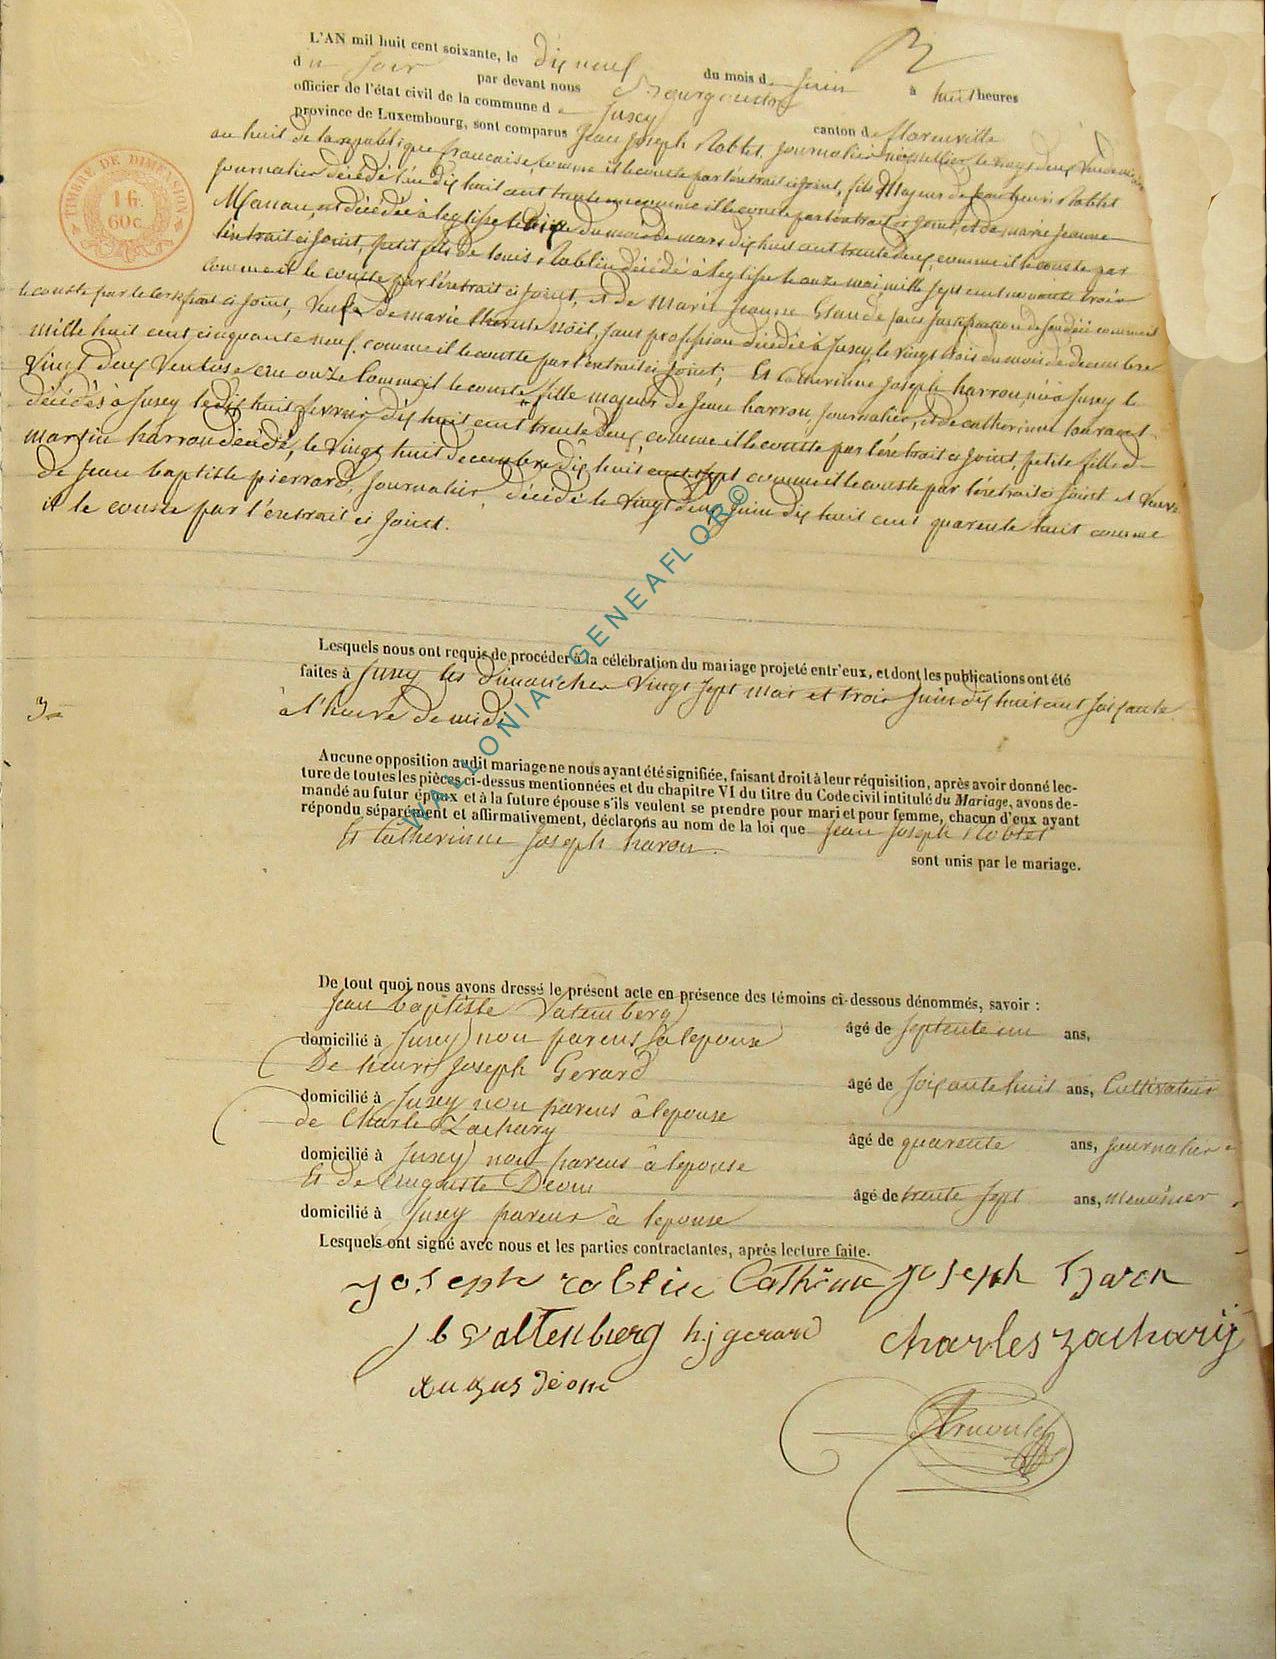 L'AN mil huit cent soixante, le dix neuf du mois de juin à huit heures
du soir par devant nous Bourgmestre
officier de l'état civil de la commune de Jusey canton de florenville
province de Luxembourg, sont comparus Jean Joseph Roblet, journalier, le vingt deux Vendemiaire
au huit de la republique francaise, comme il le conste par l'extrait ci joint, fils Majeur de Jean henri Roblet
journalier décédé l'an dix huit cent trente comme il le conste par l'extrait ci joint, et de marie jeanne
Manau, décédée à leglise le du mois de mars dix huit cent trente deux, comme il le conste par
l'extrait ci joint, petit fils de louis Roblin décédé à leglise le onze mai mille sept cent nonante trois
comme il le conste par l'extrait ci joint, et de Marie Jeanne Claude sans justification de son décé comme il
le conste par le certificat ci joint, Veuf de marie therese noël, sans profession décédée à Jusey le vingt trois du mois de decembre
mille huit cent cinquante neuf comme il le conste par l'extrait ci joint; Et Catherinne joseph harrou, née à Jusey le
vingt deux Ventose an onze comme il le conste, fille majeur de Jean harrou, journalier, et de catherinne
décédés à Jusey le dix huit fevrier dix huit cent trente deux comme il le conste par l'extrait ci joint, petite fille de
martin harrou décédé, le vingt huit decembre dix huit cent sept comme il le conste par l'extrait ci joint et Veuve
de Jean baptiste pierrard, journalier, décédé le vingt deux juin dix huit cent quarente huit comme
il le conste par l'extrait ci joint.
Lesquels nous ont requis de procéder à la célébration du mariage projeté entr'eux, et dont les publications ont été
faites à Jusey les dimanches vingt sept mai et trois juin dix huit cent soixante
à l'heure de midi
Aucune opposition audit mariage ne nous ayant été signifiée, faisant droit à leur réquisition, après avoir donné lec-
ture de toutes les pièces ci-dessus mentionnées et du chapitre VI du titre du Code civil intitulé du Mariage, avons de-
mandé au futur époux et à la future épouse s'ils veulent se prendre pour mari et pour femme, chacun d'eux ayant
répondu séparément et affirmativement, déclarons au nom de la loi que Jean Joseph Roblet
Et Catherinne Joseph harou
sont unis par le mariage.
De tout quoi nous avons dressé le présent acte en présence des témoins ci-dessous dénommés, savoir :
Jean baptiste Vatemberg âgé de septente un ans,
domicilié à Jusey non parens à lepouse
De henri joseph Gerard âgé de soixante huit ans, Cultivateur
domicilié à Jusey non parens à lepouse
de Charle Zachary âgé de quarente ans, journalier
domicilié à Jusey non parens à lepouse
Et de Auguste Deom âgé de trente sept ans, menuisier
domicilié à Jusey parens à lepouse
Lesquels ont signé avec nous et les parties contractantes, après lecture faite.
joseph roblin Catherine joseph haron
j b Valtenburg hj gerard charles zachary
augus déom
Arnould
TIMBRE DE DIMENSION
16.
60c.
WALLONIA - GENEAFLOR©